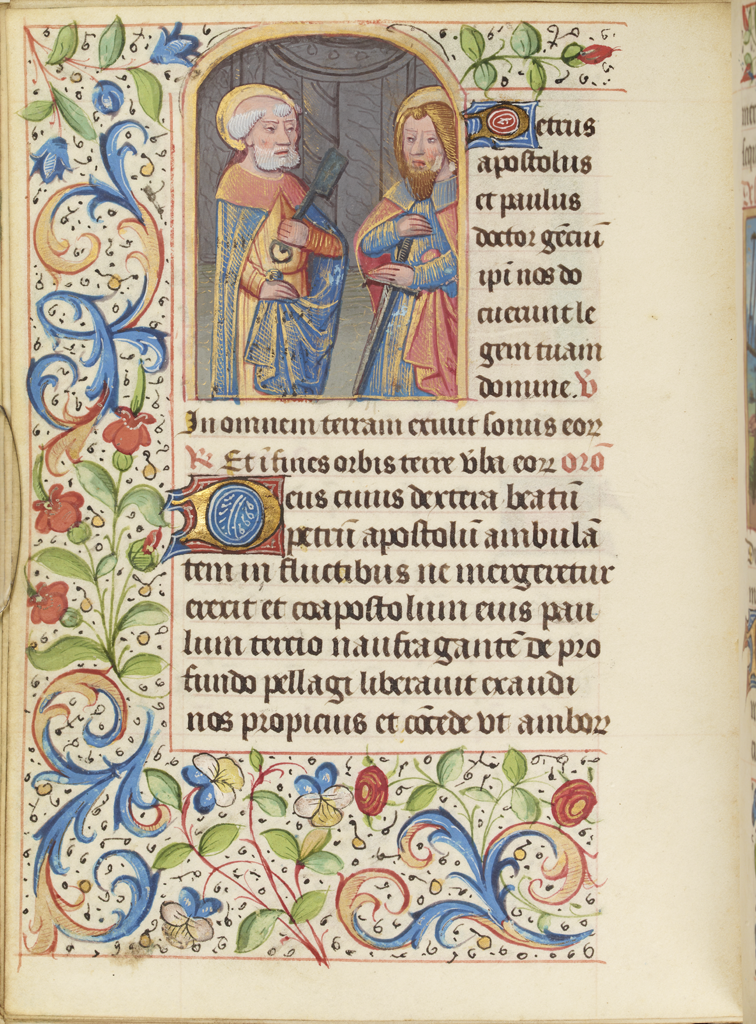 Petrus
apostolus
et paulus
doctor gēciū
ipī nos do
cuerunt le
gem tuam
domine. V
In omnem terram exiuit sonus eoꝝ
R Et ī fines orbis terre v̄ba eoꝝ orō
Deus cuius dextera beatū
petrū apostolū ambulā
tem in fluctibus ne mergeretur
erexit et coapostolum eius pau
lum tercio naufragantē de pro
fundo pellagi liberauit exaudi
nos propicius et cōcede vt amboꝝ